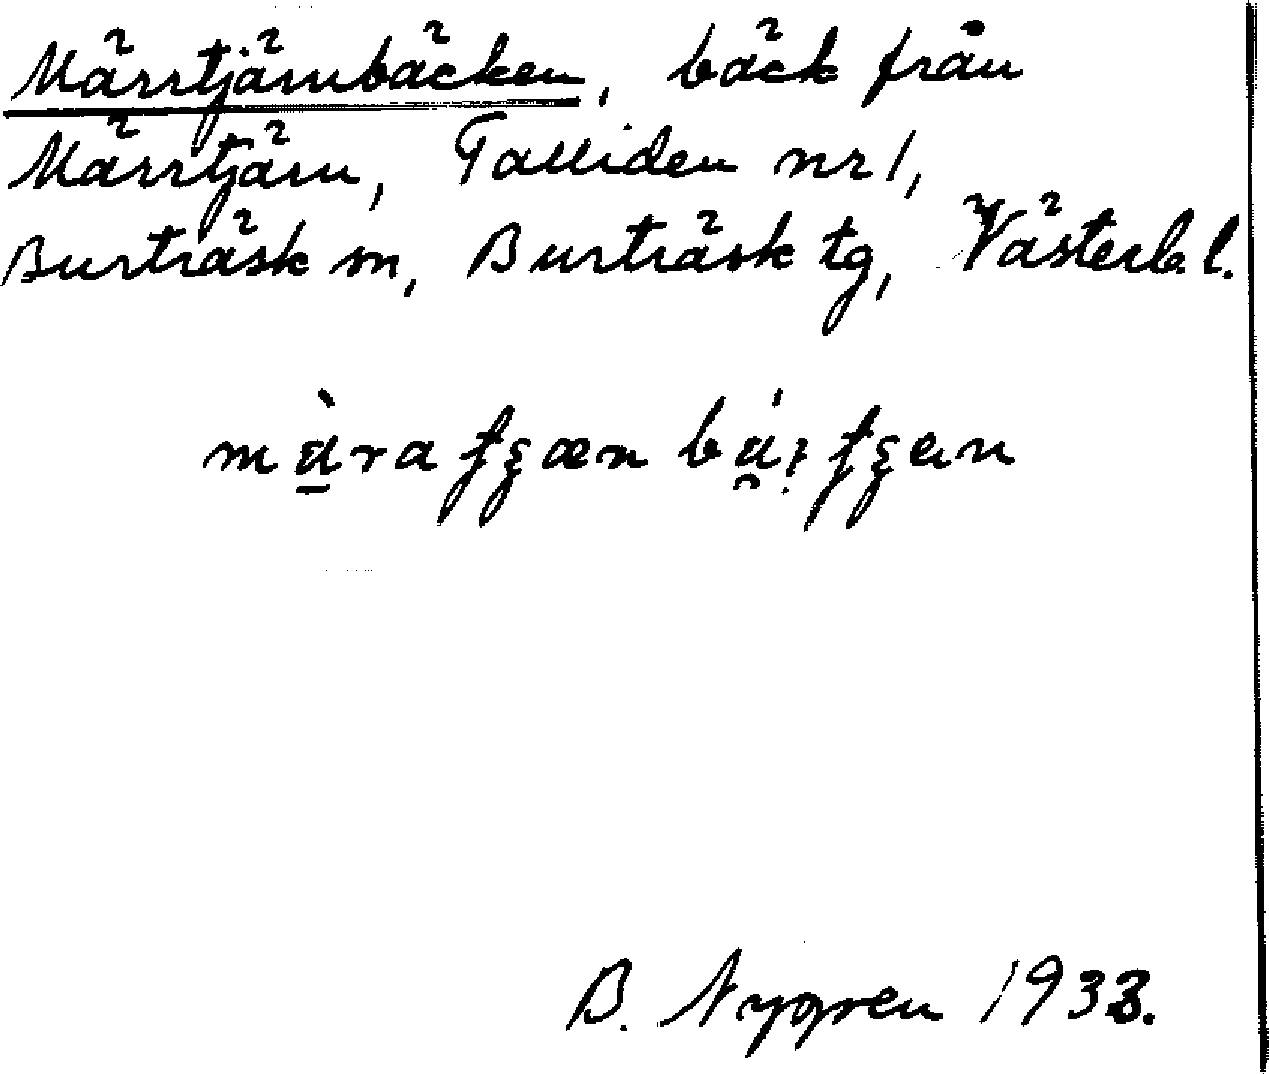 Märrtjärnbäcken, bäck från
Märrtjärn, Talliden nr 1,
Burträsk sn, Burträsk tg, Västerb. l.
B. Nygren 1933.